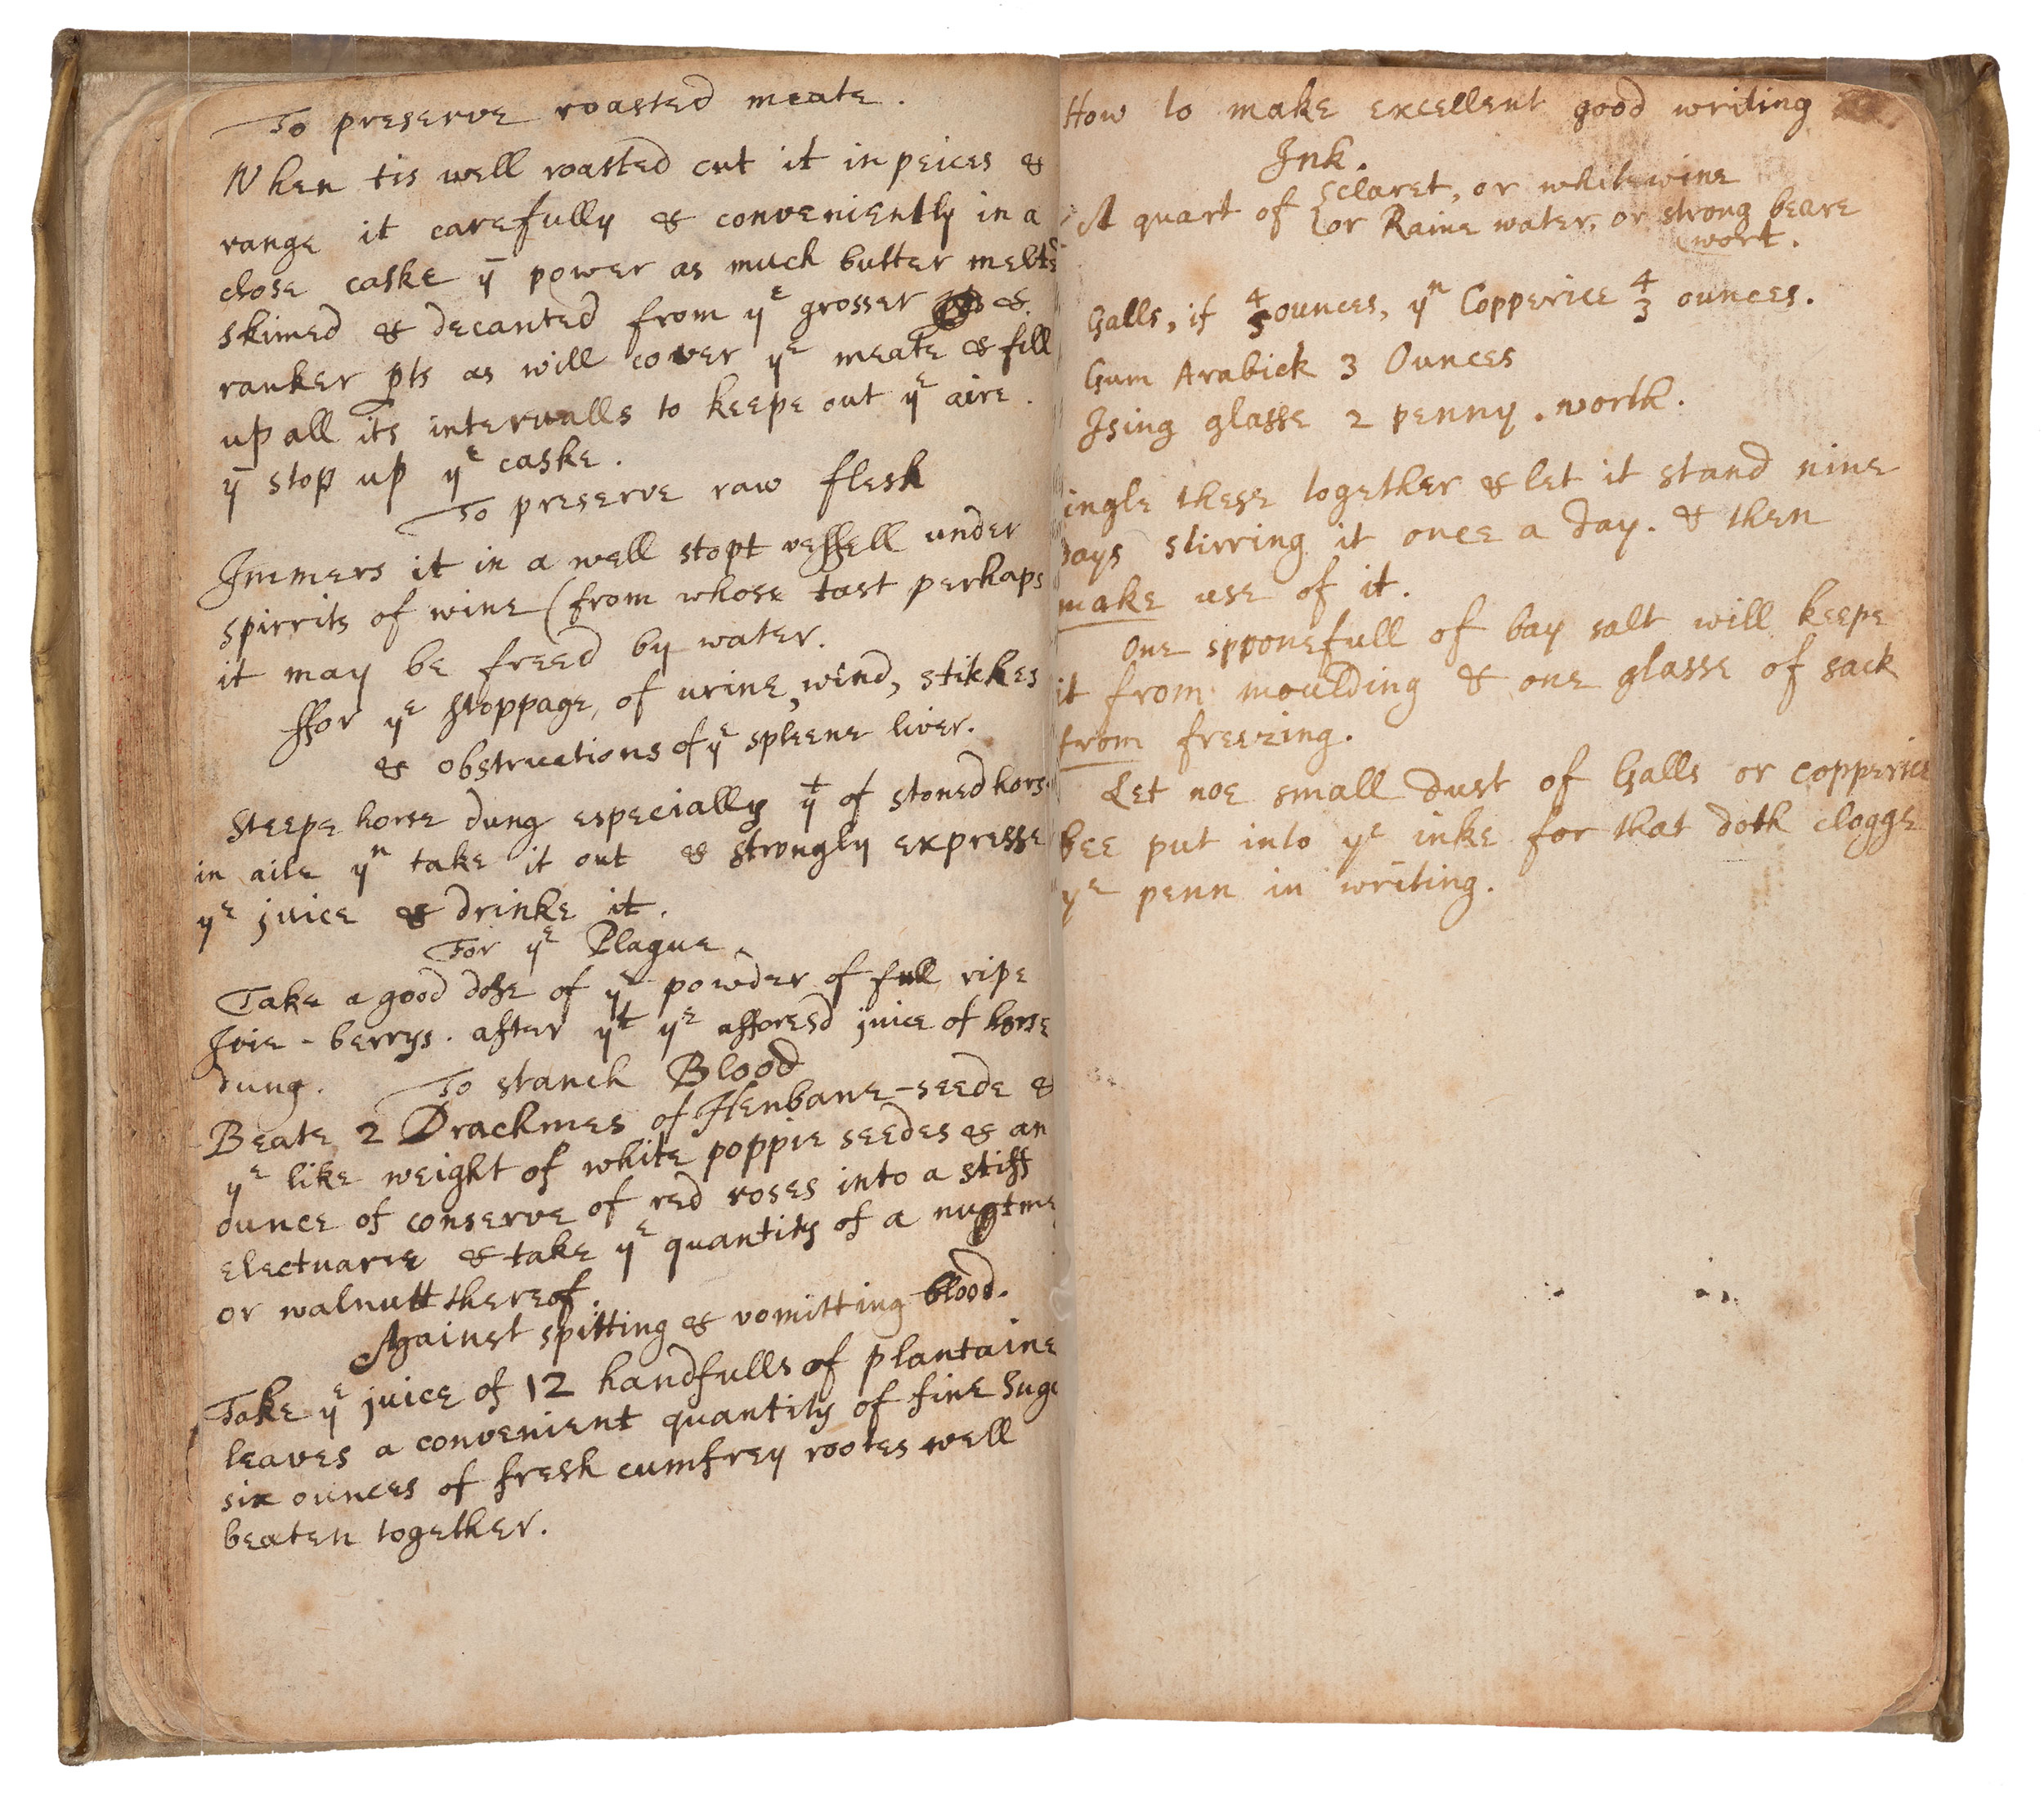 To preserve roasted meate.
When tis well roasted cut it in peices &
range it carefully & conveniently in a
close caske yn power as much butter melted
skimed & decanted from ye grosser &
ranker pts as will cover ye meate & fill
up all its intervalls to keepe out ye aire.
yn stop up ye caske.
To preserve raw flesh
Immers it in a well stopt vessell under
spirrits of wine (from whose tast perhaps
it may be freed by water.
ffor ye stoppage, of urine, wind, stitches
& obstructions of ye spleene liver.
Steepe horse dung especially yt of stoned hors
in aile yn take it out & strongly expresse
ye juice & drinke it.
For ye Plague.
Take a good dose of ye powder of full ripe
Ivie-berrys. after yt ye afforesd juice of horse
dung. To stanch Blood
Beate 2 Drachmes of Henbane-seede &
ye like weight of white poppie seedes & an
ounce of conserve of red roses into a stiff
electuarie & take ye quantity of a nugtme
or walnutt thereof.
Against spitting & vomitting blood.
Take ye juice of 12 handfulls of plantaine
leaves a convenient quantity of fine Suga
six ounces of fresh cumfrey rootes well
beaten together.
How to make excellent good writing
Ink.
A quart of { claret, or whitewine
or Raine water, or strong beare
wort.
Galls, if 4 5 ounces, yn Copperice 4 3 ounces.
Gum Arabick 3 Ounces
Ising glasse 2 penny.worth.
ingle these together & let it stand nine
days stirring it once a day. & then
make use of it.
One spponefull of bay salt will keepe
it from moulding & one glasse of sack
from freezing.
Let noe small dust of Galls or copperice
bee put into ye inke for that doth clogge
ye penn in writing.